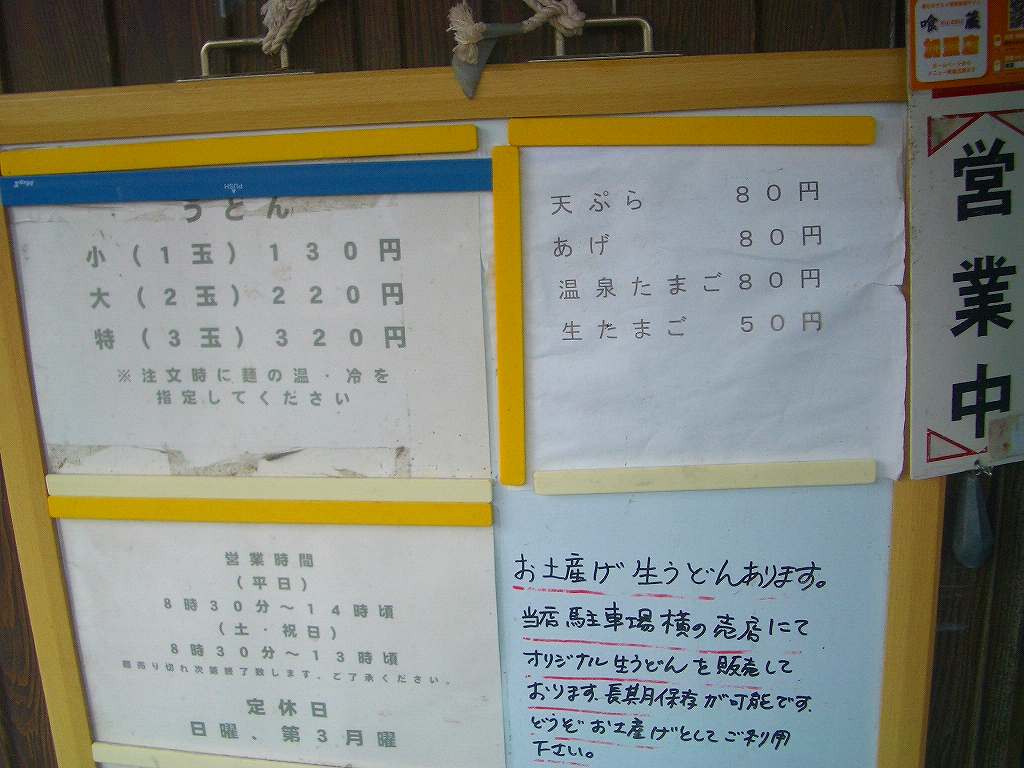 うどん
小（1玉）130円
大（2玉）220円
特（3玉）320円
※注文時に麺の温・冷を
指定してください
天ぷら 80円
あげ 80円
温泉たまご 80円
生たまご 50円
営業時間
（平日）
8時30分～14時頃
（土・祝日）
8時30分～13時頃
麺売り切れ次第終了致します。ご了承ください。
定休日
日曜、第3月曜
お土産げ生うどんあります。
当店駐車場横の売店にて
オリジナル生うどんを販売して
おります。長期保存が可能です。
どうぞお土産げとしてご利用
下さい。
営業中
PUSH
加盟店